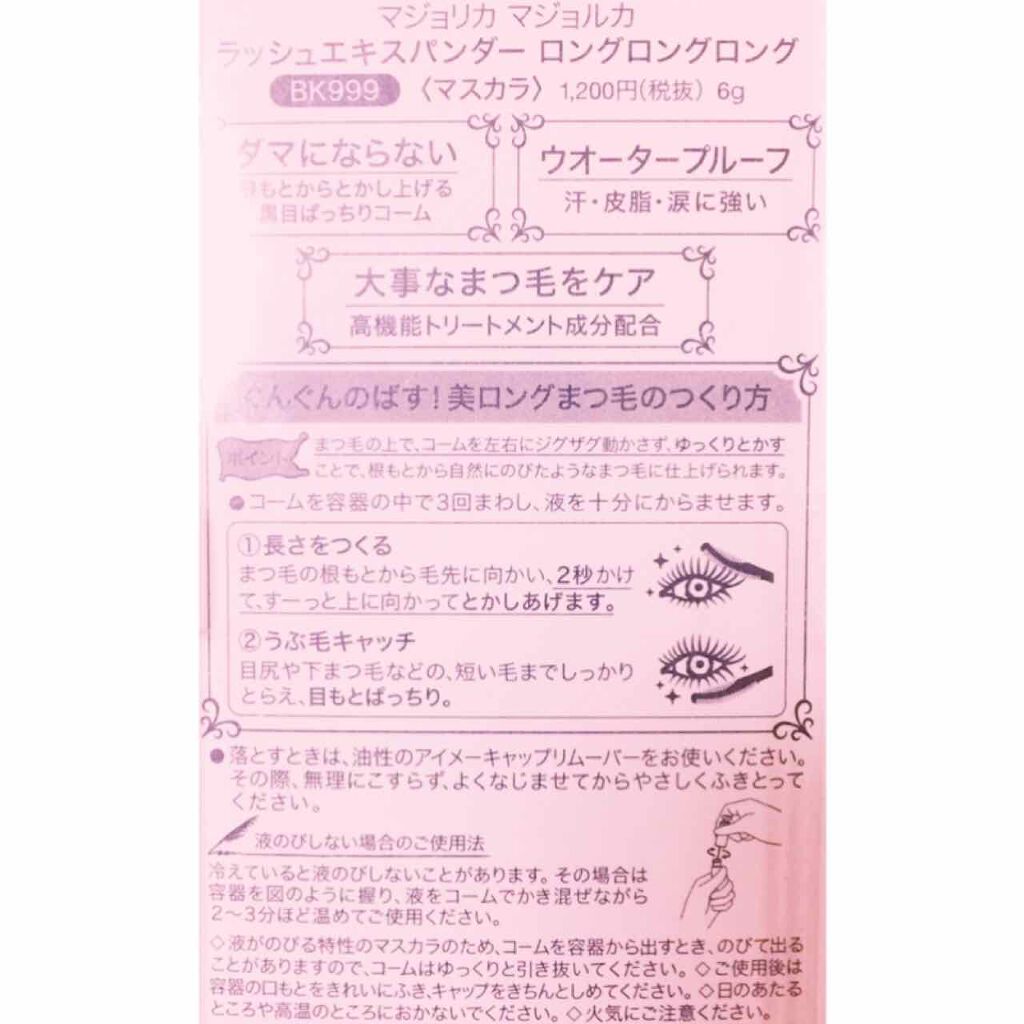 マジョリカ マジョルカ
ラッシュエキスパンダー ロングロングロング
BK999 〈マスカラ〉 1,200円(税抜) 6g
ダマにならない
根もとからとかし上げる
黒目ぱっちりコーム
ウオータープルーフ
汗・皮脂・涙に強い
大事なまつ毛をケア
高機能トリートメント成分配合
ぐんぐんのばす!美ロングまつ毛のつくり方
ポイント
まつ毛の上で、コームを左右にジグザグ動かさず、ゆっくりとかす
ことで、根もとから自然にのびたようなまつ毛に仕上げられます。
●コームを容器の中で3回まわし、液を十分にからませます。
①長さをつくる
まつ毛の根もとから毛先に向かい、2秒かけ
て、すーっと上に向かってとかしあげます。
②うぶ毛キャッチ
目尻や下まつ毛などの、短い毛までしっかり
とらえ、目もとぱっちり。
●落とすときは、油性のアイメーキャップリムーバーをお使いください。
その際、無理にこすらず、よくなじませてからやさしくふきとって
ください。
液のびしない場合のご使用法
冷えていると液のびしないことがあります。その場合は
容器を図のように握り、液をコームでかき混ぜながら
2〜3分ほど温めてご使用ください。
◇液がのびる特性のマスカラのため、コームを容器から出すとき、のびて出る
ことがありますので、コームはゆっくりと引き抜いてください。◇ご使用後は
容器の口もとをきれいにふき、キャップをきちんとしめてください。◇日のあたる
ところや高温のところにおかないでください。◇火気にご注意ください。